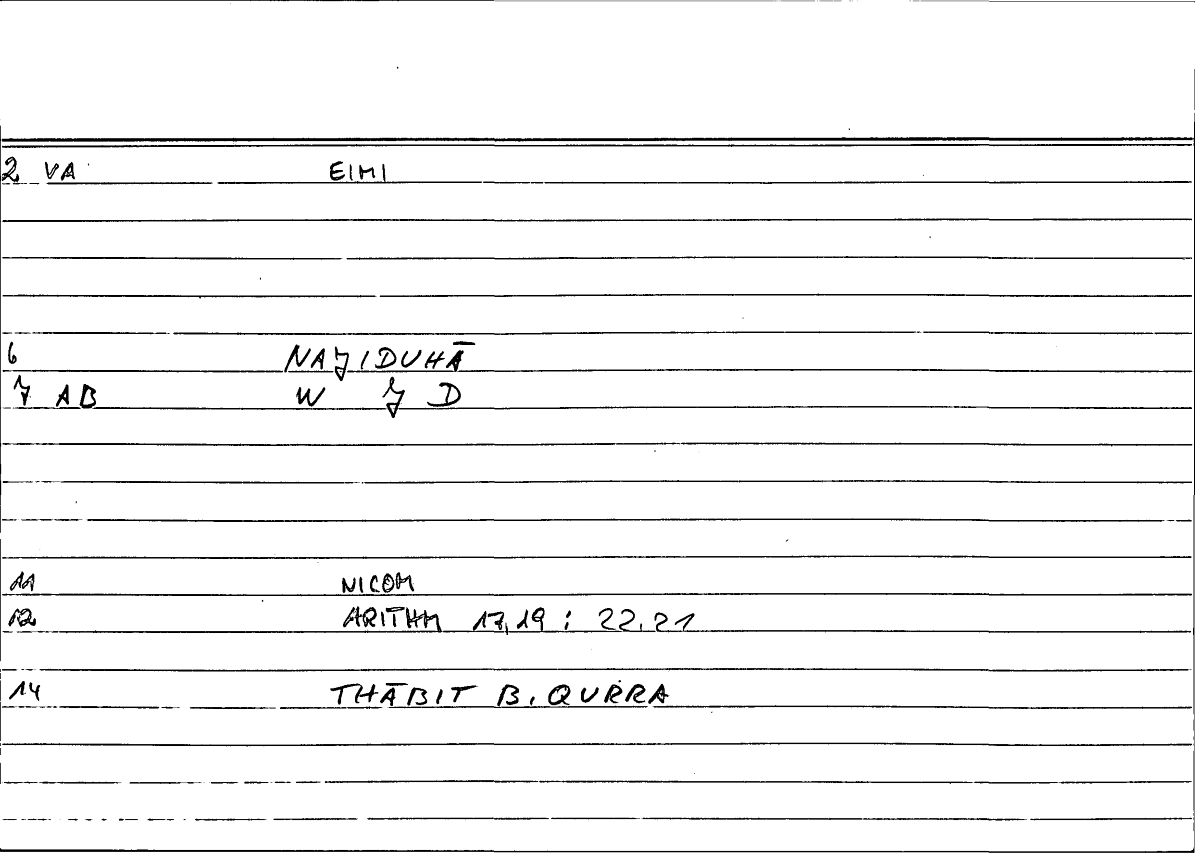 2 VA EIMI
6 NAJIDUHĀ
7 AB W J D
11 NICOM
12 ARITHM 17,19 : 22,21
14 THĀBIT B. QURRA